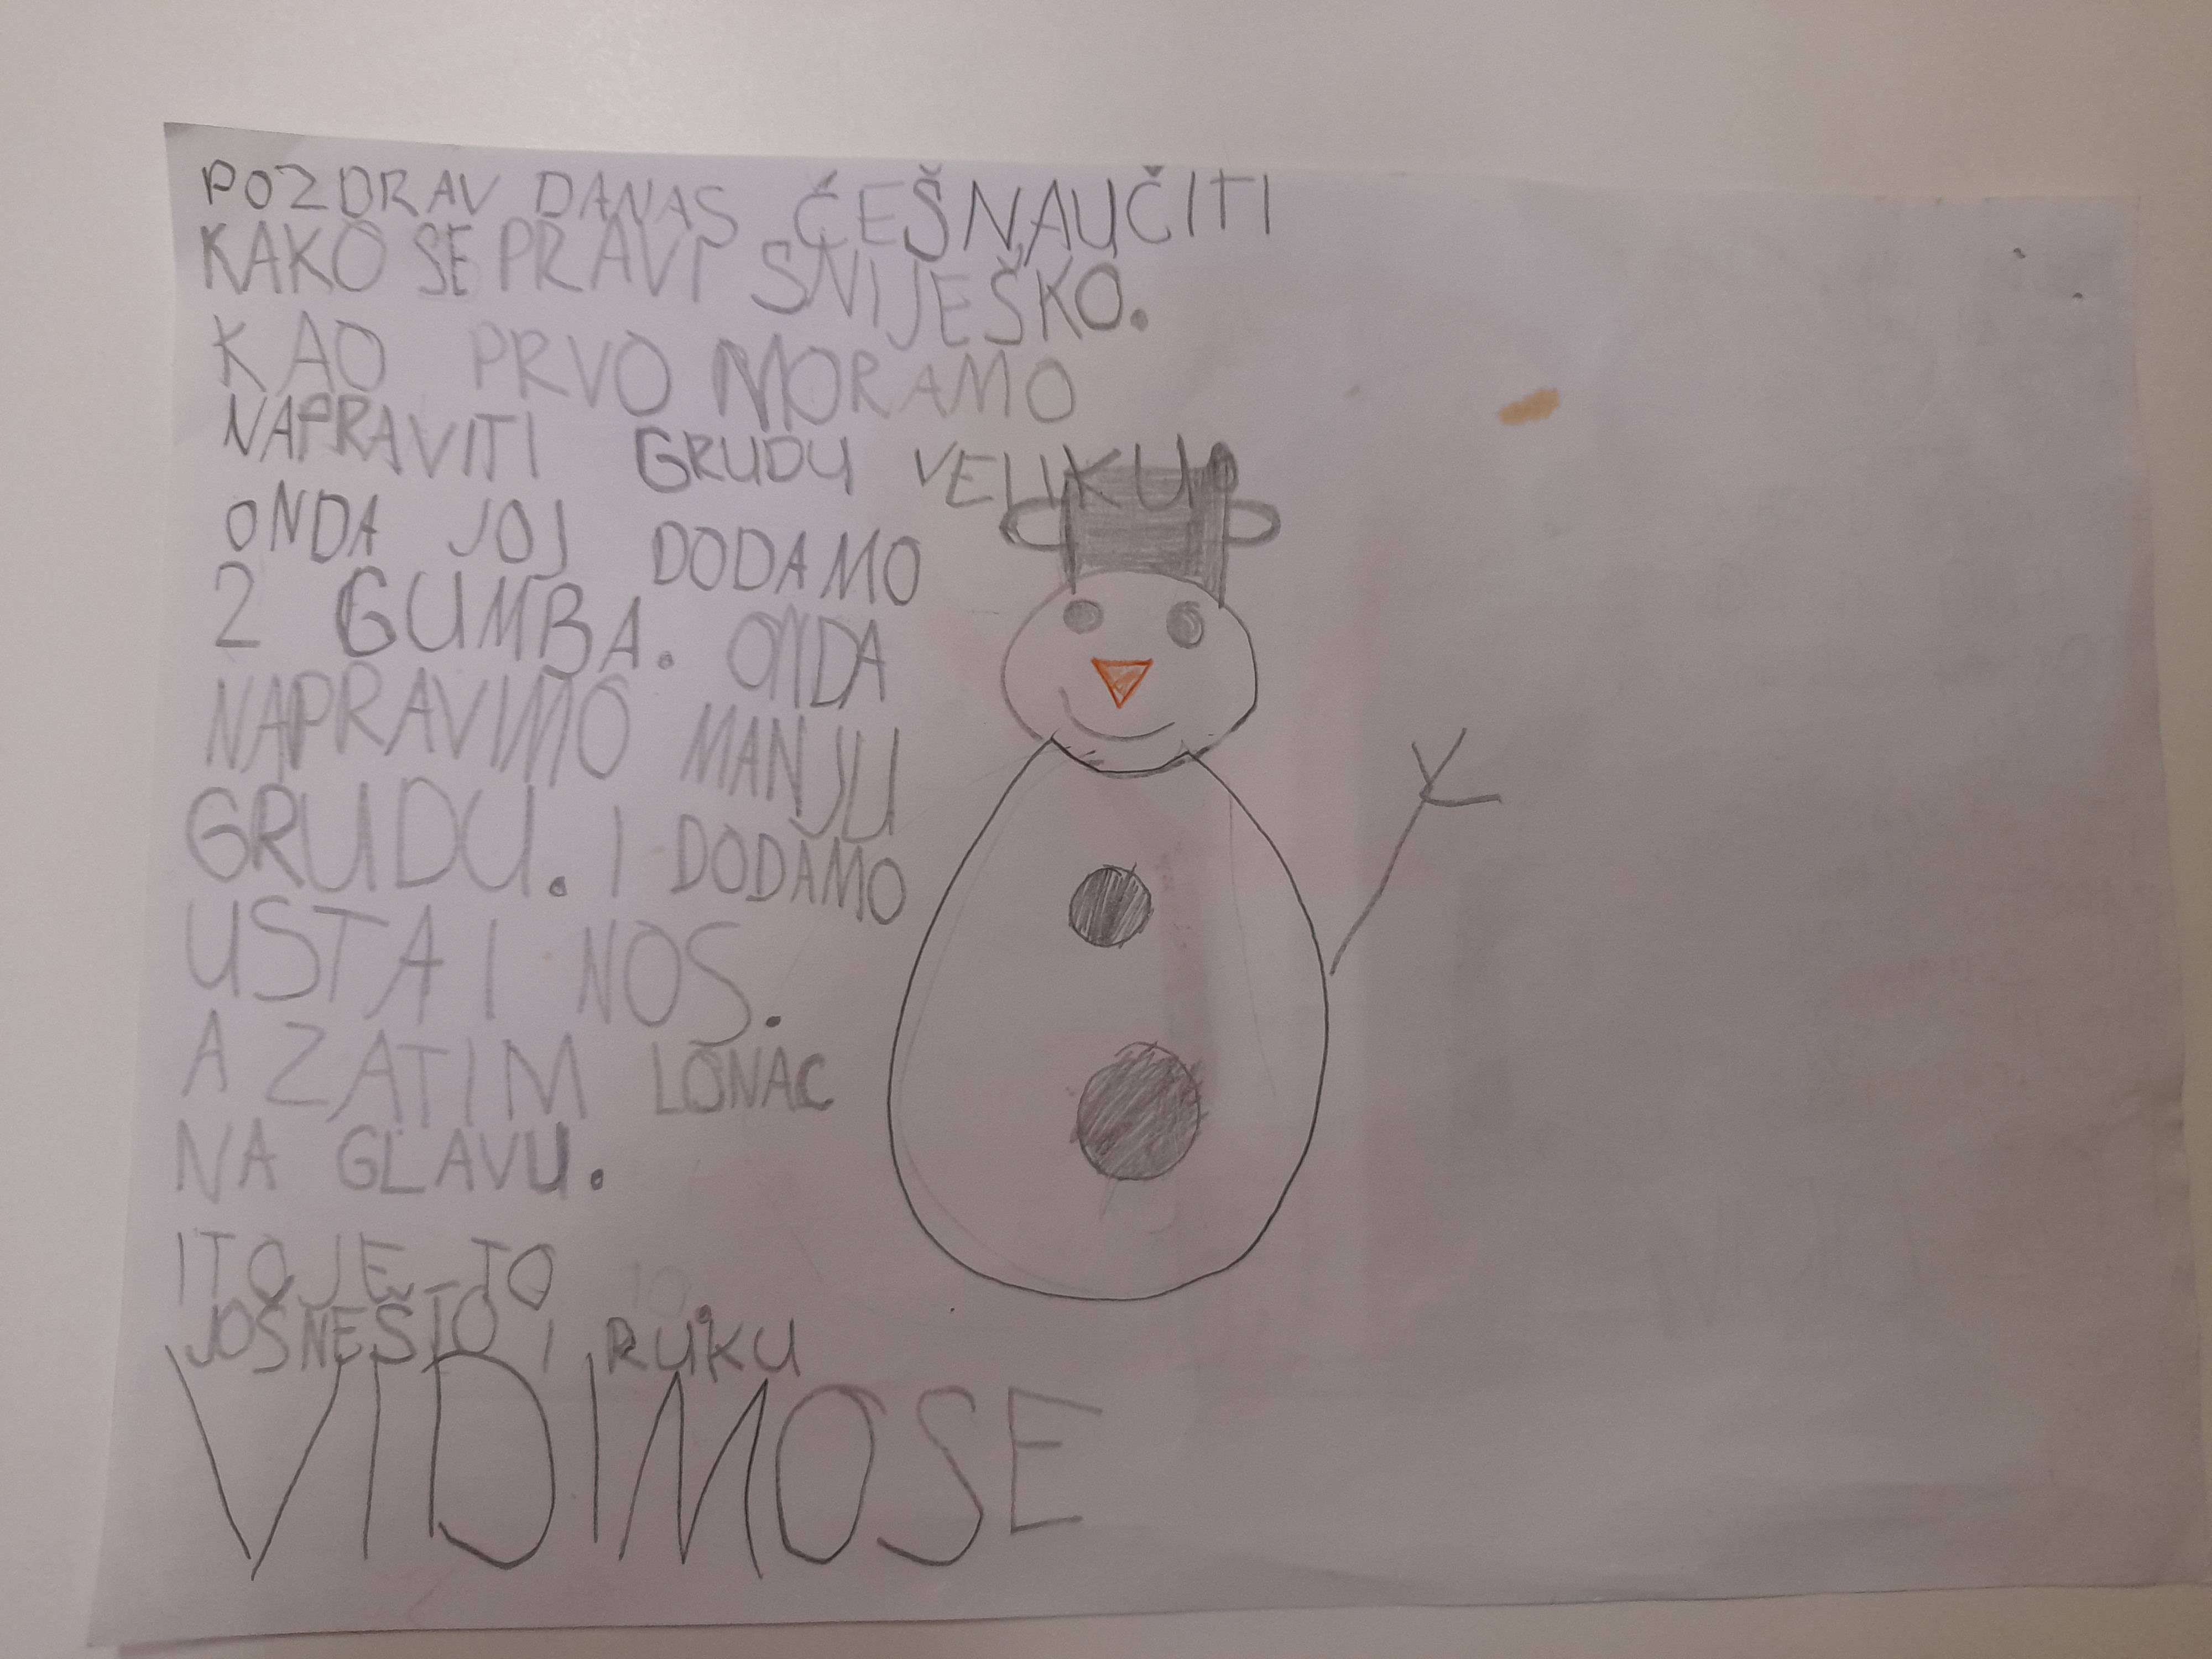 POZDRAV DANAS ČEŠNAUČITI
KAKO SE PRAVI SNIJEŠKO.
KAO PRVO MORAMO
NAPRAVITI GRUDU VELIKU.
ONDA JOJ DODAMO
2 GUMBA. ONDA
NAPRAVIMO MANJU
GRUDU. I DODAMO
USTA I NOS.
A ZATIM LONAC
NA GLAVU.
ITOJE TO
JOŠNEŠTO I RUKU
VIDIMOSE